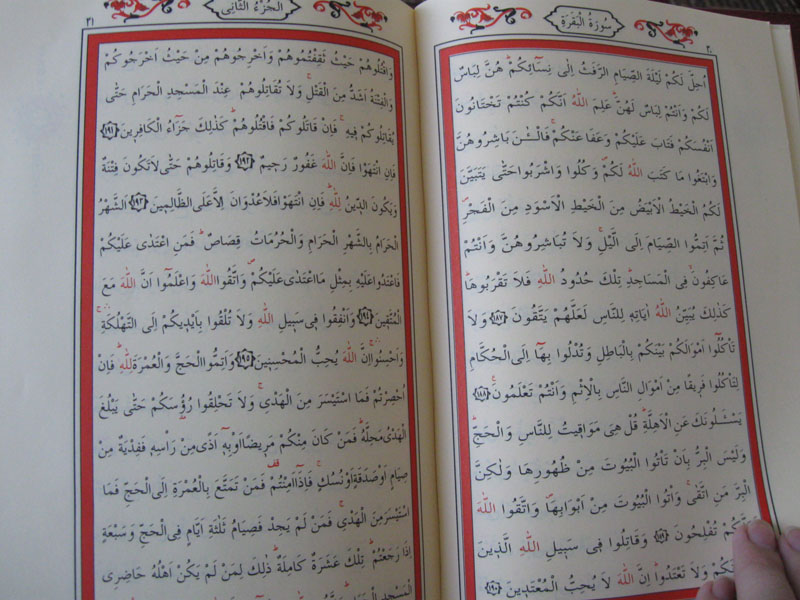 سُورَةُ الْبَقَرَةِ
٢٠
اُحِلَّ لَكُمْ لَيْلَةَ الصِّيَامِ الرَّفَثُ اِلٰى نِسَٓائِكُمْۜ هُنَّ لِبَاسٌ
لَكُمْ وَاَنْتُمْ لِبَاسٌ لَهُنَّۜ عَلِمَ اللّٰهُ اَنَّكُمْ كُنْتُمْ تَخْتَانُونَ
اَنْفُسَكُمْ فَتَابَ عَلَيْكُمْ وَعَفَا عَنْكُمْۚ فَالْـٰٔنَ بَاشِرُوهُنَّ
وَابْتَغُوا مَا كَتَبَ اللّٰهُ لَكُمْۖ وَكُلُوا وَاشْرَبُوا حَتّٰى يَتَبَيَّنَ
لَكُمُ الْخَيْطُ الْاَبْيَضُ مِنَ الْخَيْطِ الْاَسْوَدِ مِنَ الْفَجْرِۖ
ثُمَّ اَتِمُّوا الصِّيَامَ اِلَى الَّيْلِۚ وَلَا تُبَاشِرُوهُنَّ وَاَنْتُمْ
عَاكِفُونَۙ فِي الْمَسَاجِدِۜ تِلْكَ حُدُودُ اللّٰهِ فَلَا تَقْرَبُوهَاۜ
كَذٰلِكَ يُبَيِّنُ اللّٰهُ اٰيَاتِهٖ لِلنَّاسِ لَعَلَّهُمْ يَتَّقُونَ ﴿١٨٧﴾ وَلَا
تَأْكُلُٓوا اَمْوَالَكُمْ بَيْنَكُمْ بِالْبَاطِلِ وَتُدْلُوا بِهَٓا اِلَى الْحُكَّامِ
لِتَأْكُلُوا فَرِيقًا مِنْ اَمْوَالِ النَّاسِ بِالْاِثْمِ وَاَنْتُمْ تَعْلَمُونَ ﴿١٨٨﴾
يَسْـَٔلُونَكَ عَنِ الْاَهِلَّةِۜ قُلْ هِيَ مَوَاقِيتُ لِلنَّاسِ وَالْحَجِّۜ
وَلَيْسَ الْبِرُّ بِاَنْ تَأْتُوا الْبُيُوتَ مِنْ ظُهُورِهَا وَلٰكِنَّ
الْبِرَّ مَنِ اتَّقٰىۚ وَأْتُوا الْبُيُوتَ مِنْ اَبْوَابِهَاۖ وَاتَّقُوا اللّٰهَ
تُفْلِحُونَ ﴿١٨٩﴾ وَقَاتِلُوا فِي سَبِيلِ اللّٰهِ الَّذِينَ
وَلَا تَعْتَدُواۜ اِنَّ اللّٰهَ لَا يُحِبُّ الْمُعْتَدِينَ ﴿١٩٠﴾
اَلْجُزْءُ الثَّانِي
٢١
وَاقْتُلُوهُمْ حَيْثُ ثَقِفْتُمُوهُمْ وَاَخْرِجُوهُمْ مِنْ حَيْثُ اَخْرَجُوكُمْ
وَالْفِتْنَةُ اَشَدُّ مِنَ الْقَتْلِۚ وَلَا تُقَاتِلُوهُمْ عِنْدَ الْمَسْجِدِ الْحَرَامِ حَتّٰى
يُقَاتِلُوكُمْ فِيهِۚ فَاِنْ قَاتَلُوكُمْ فَاقْتُلُوهُمْۜ كَذٰلِكَ جَزَٓاءُ الْكَافِرِينَ ﴿١٩١﴾
فَاِنِ انْتَهَوْا فَاِنَّ اللّٰهَ غَفُورٌ رَحِيمٌ ﴿١٩٢﴾ وَقَاتِلُوهُمْ حَتّٰى لَا تَكُونَ فِتْنَةٌ
وَيَكُونَ الدِّينُ لِلّٰهِۜ فَاِنِ انْتَهَوْا فَلَا عُدْوَانَ اِلَّا عَلَى الظَّالِمِينَ ﴿١٩٣﴾ اَلشَّهْرُ
الْحَرَامُ بِالشَّهْرِ الْحَرَامِ وَالْحُرُمَاتُ قِصَاصٌۜ فَمَنِ اعْتَدٰى عَلَيْكُمْ
فَاعْتَدُوا عَلَيْهِ بِمِثْلِ مَا اعْتَدٰى عَلَيْكُمْۖ وَاتَّقُوا اللّٰهَ وَاعْلَمُٓوا اَنَّ اللّٰهَ مَعَ
الْمُتَّقِينَ ﴿١٩٤﴾ وَاَنْفِقُوا فِي سَبِيلِ اللّٰهِ وَلَا تُلْقُوا بِاَيْدِيكُمْ اِلَى التَّهْلُكَةِۚ
وَاَحْسِنُواۚ اِنَّ اللّٰهَ يُحِبُّ الْمُحْسِنِينَ ﴿١٩٥﴾ وَاَتِمُّوا الْحَجَّ وَالْعُمْرَةَ لِلّٰهِۜ فَاِنْ
اُحْصِرْتُمْ فَمَا اسْتَيْسَرَ مِنَ الْهَدْيِۚ وَلَا تَحْلِقُوا رُؤُ۫سَكُمْ حَتّٰى يَبْلُغَ
الْهَدْيُ مَحِلَّهُۜ فَمَنْ كَانَ مِنْكُمْ مَرِيضًا اَوْ بِهٖٓ اَذًى مِنْ رَأْسِهٖ فَفِدْيَةٌ مِنْ
صِيَامٍ اَوْ صَدَقَةٍ اَوْ نُسُكٍۚ فَاِذَٓا اَمِنْتُمْ۠ فَمَنْ تَمَتَّعَ بِالْعُمْرَةِ اِلَى الْحَجِّ فَمَا
اسْتَيْسَرَ مِنَ الْهَدْيِۚ فَمَنْ لَمْ يَجِدْ فَصِيَامُ ثَلٰثَةِ اَيَّامٍ فِي الْحَجِّ وَسَبْعَةٍ
اِذَا رَجَعْتُمْۜ تِلْكَ عَشَرَةٌ كَامِلَةٌۜ ذٰلِكَ لِمَنْ لَمْ يَكُنْ اَهْلُهُ حَاضِرِي
الْمَسْجِدِ